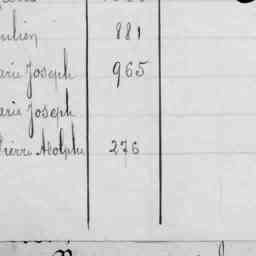 ulien 881
arie Joseph 965
arie Joseph
Pierre Adolphe 276